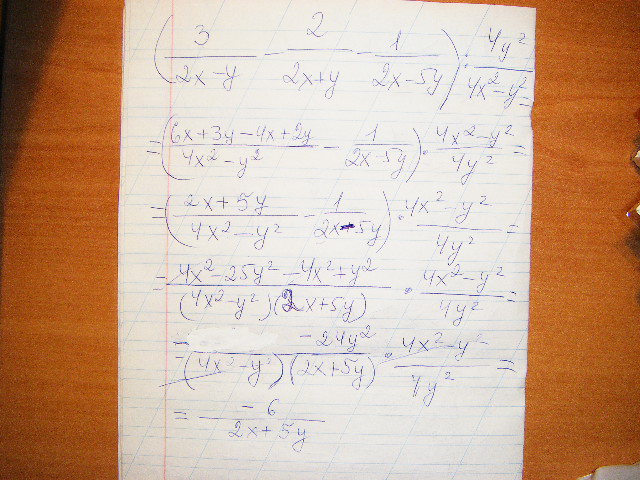 (3/(2x-y) - 2/(2x+y) - 1/(2x-5y)) : 4y²/(4x²-y²) =
= ((6x+3y-4x+2y)/(4x²-y²) - 1/(2x-5y)) · (4x²-y²)/(4y²) =
= ((2x+5y)/(4x²-y²) - 1/(2x-5y)) · (4x²-y²)/(4y²) =
= (4x²-25y²-4x²+y²)/((4x²-y²)(2x+5y)) · (4x²-y²)/(4y²) =
= (-24y²)/((4x²-y²)(2x+5y)) · (4x²-y²)/(4y²) =
= (-6)/(2x+5y)